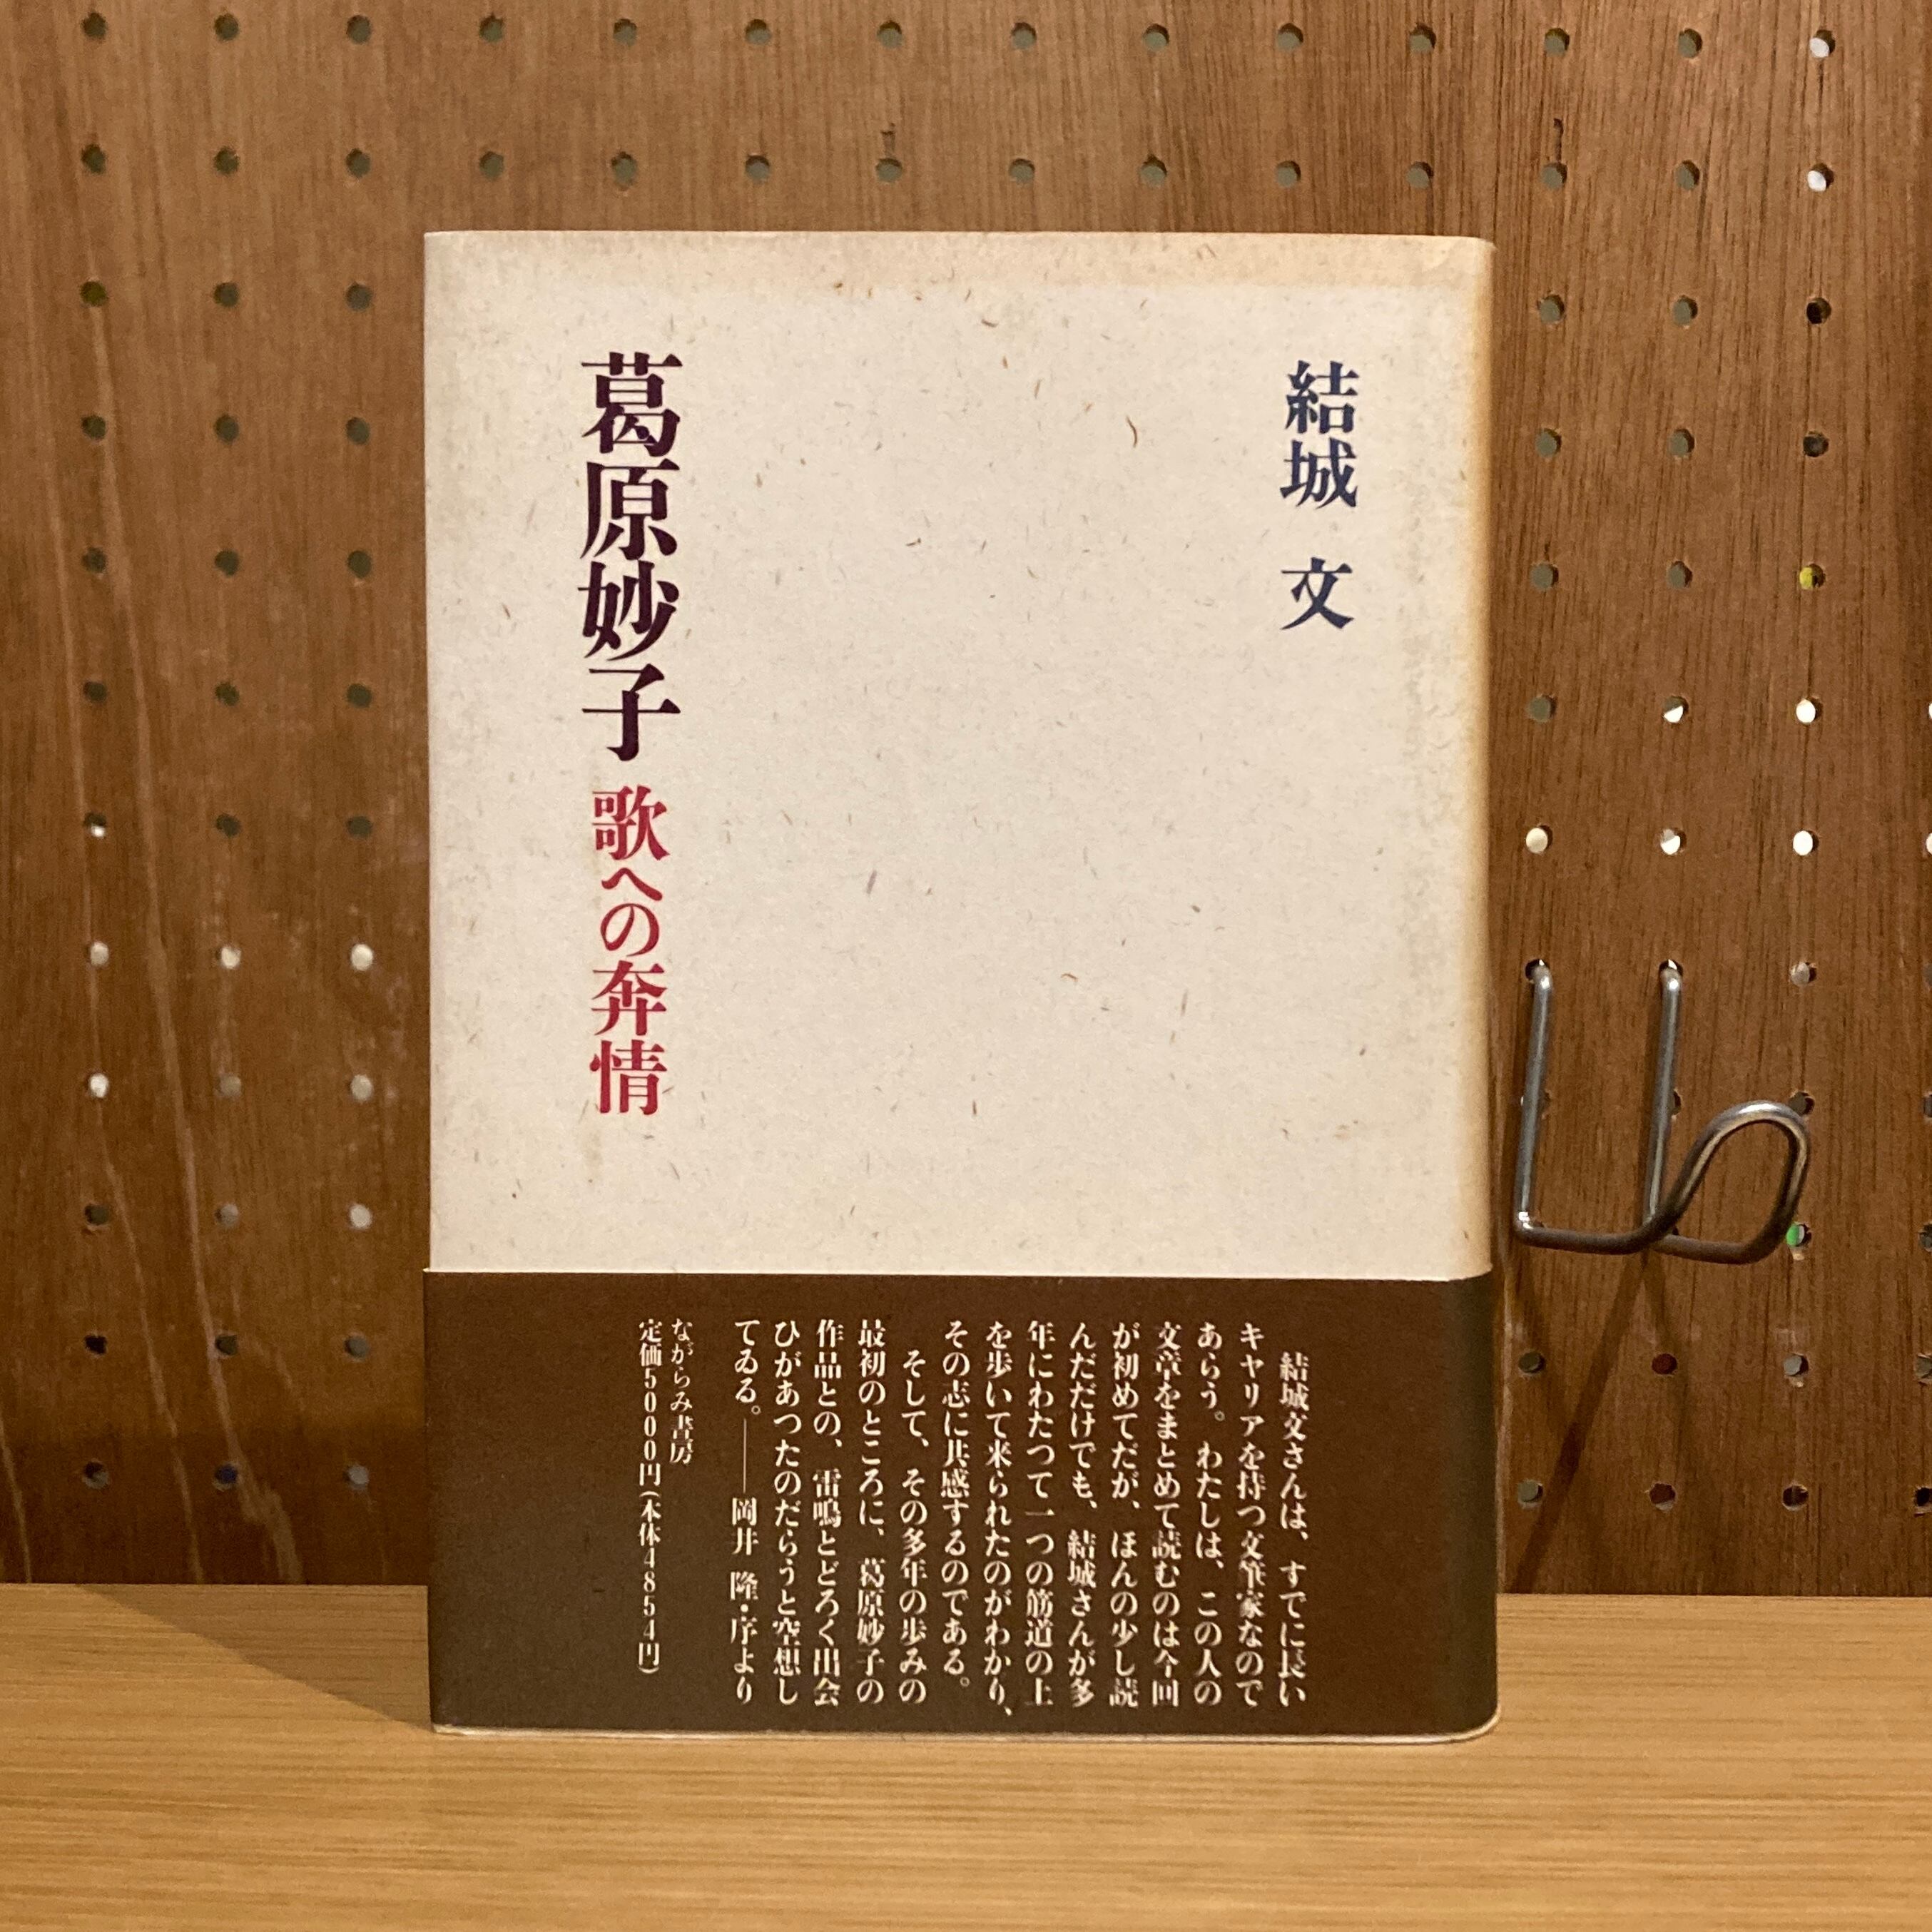 結城 文
葛原妙子 歌への奔情
結城文さんは、すでに長い
キャリアを持つ文筆家なので
あらう。わたしは、この人の
文章をまとめて読むのは今回
が初めてだが、ほんの少し読
んだだけでも、結城さんが多
年にわたつて一つの筋道の上
を歩いて来られたのがわかり、
その志に共感するのである。
そして、その多年の歩みの
最初のところに、葛原妙子の
作品との、雷鳴とどろく出会
ひがあつたのだらうと空想し
てゐる。──岡井 隆・序より
ながらみ書房
定価5000円(本体4854円)